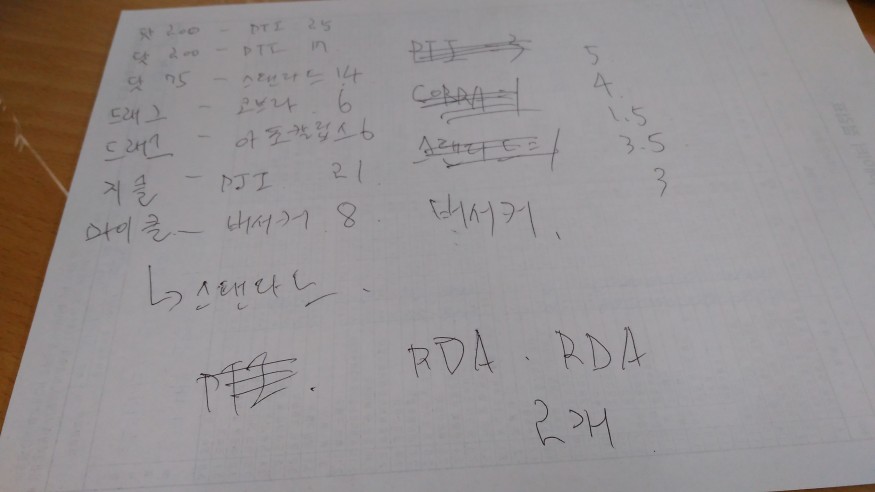 닷 200 - DJI 25
닷 200 - DJI 17
닷 75 - 스탠다드 14
드래그 - 코브라 6
드래그 - 아포칼립스 6
지플 - DJI 21
마이클 - 버서커 8
↳ 스탠다드.
DJI - 3
COBRA = 1
스탠다드 = 1
버서커.
5
4
1.5
3.5
3
RDA. RDA
2개